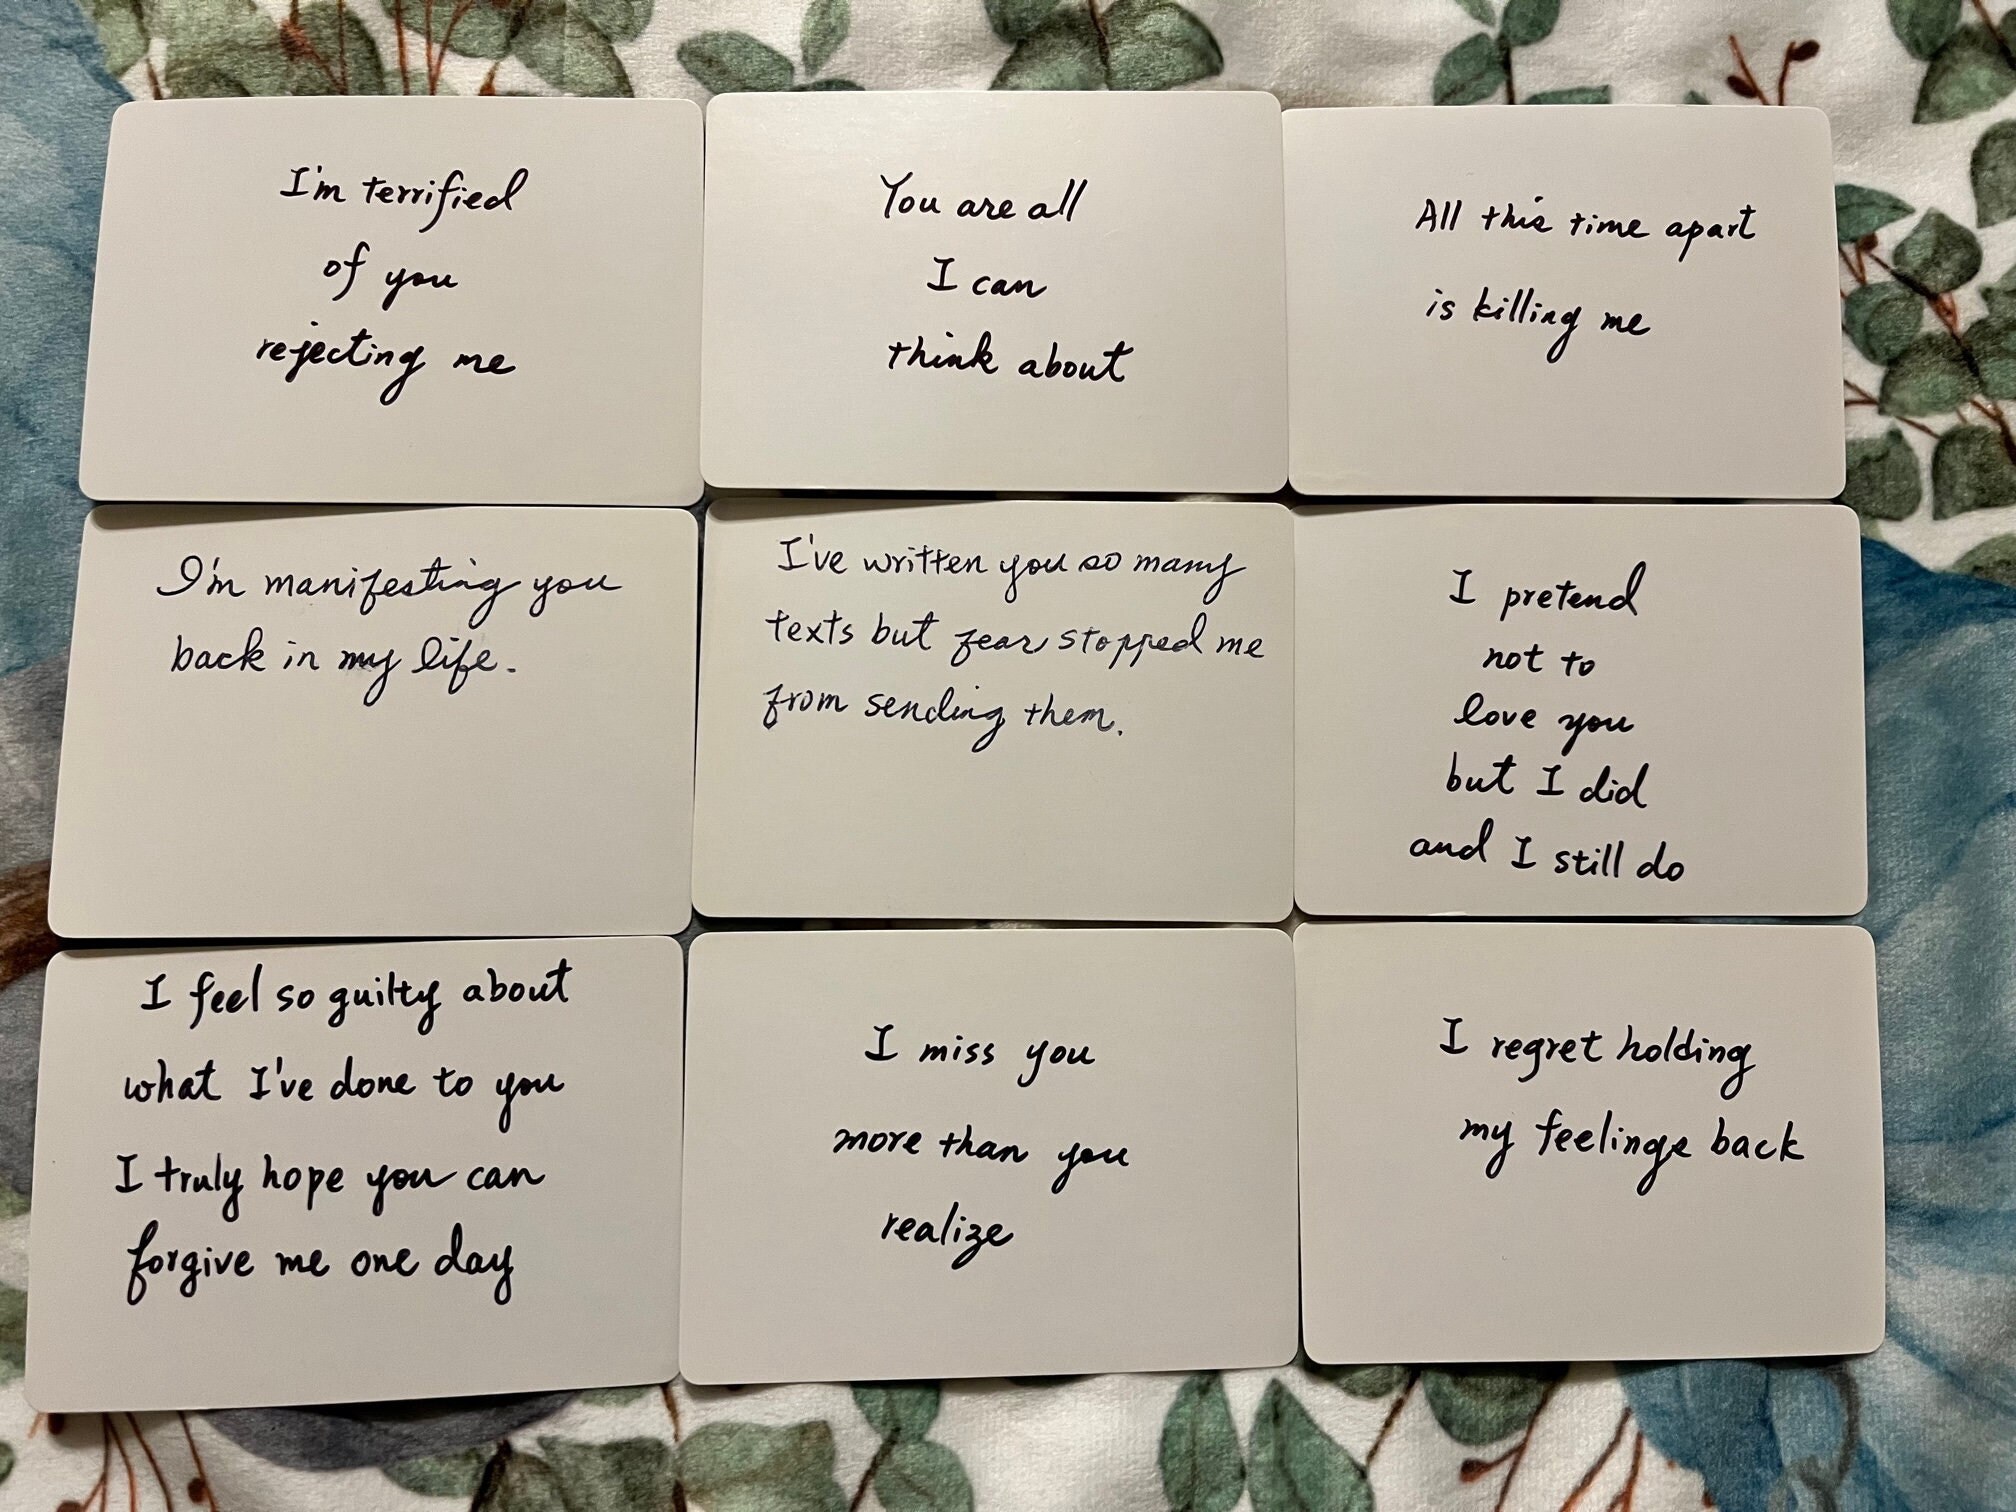 I'm terrified
of you
rejecting me
You are all
I can
think about
All this time apart
is killing me
I'm manifesting you
back in my life.
I've written you so many
texts but fear stopped me
from sending them.
I pretend
not to
love you
but I did
and I still do
I feel so guilty about
what I've done to you
I truly hope you can
forgive me one day
I miss you
more than you
realize
I regret holding
my feelings back